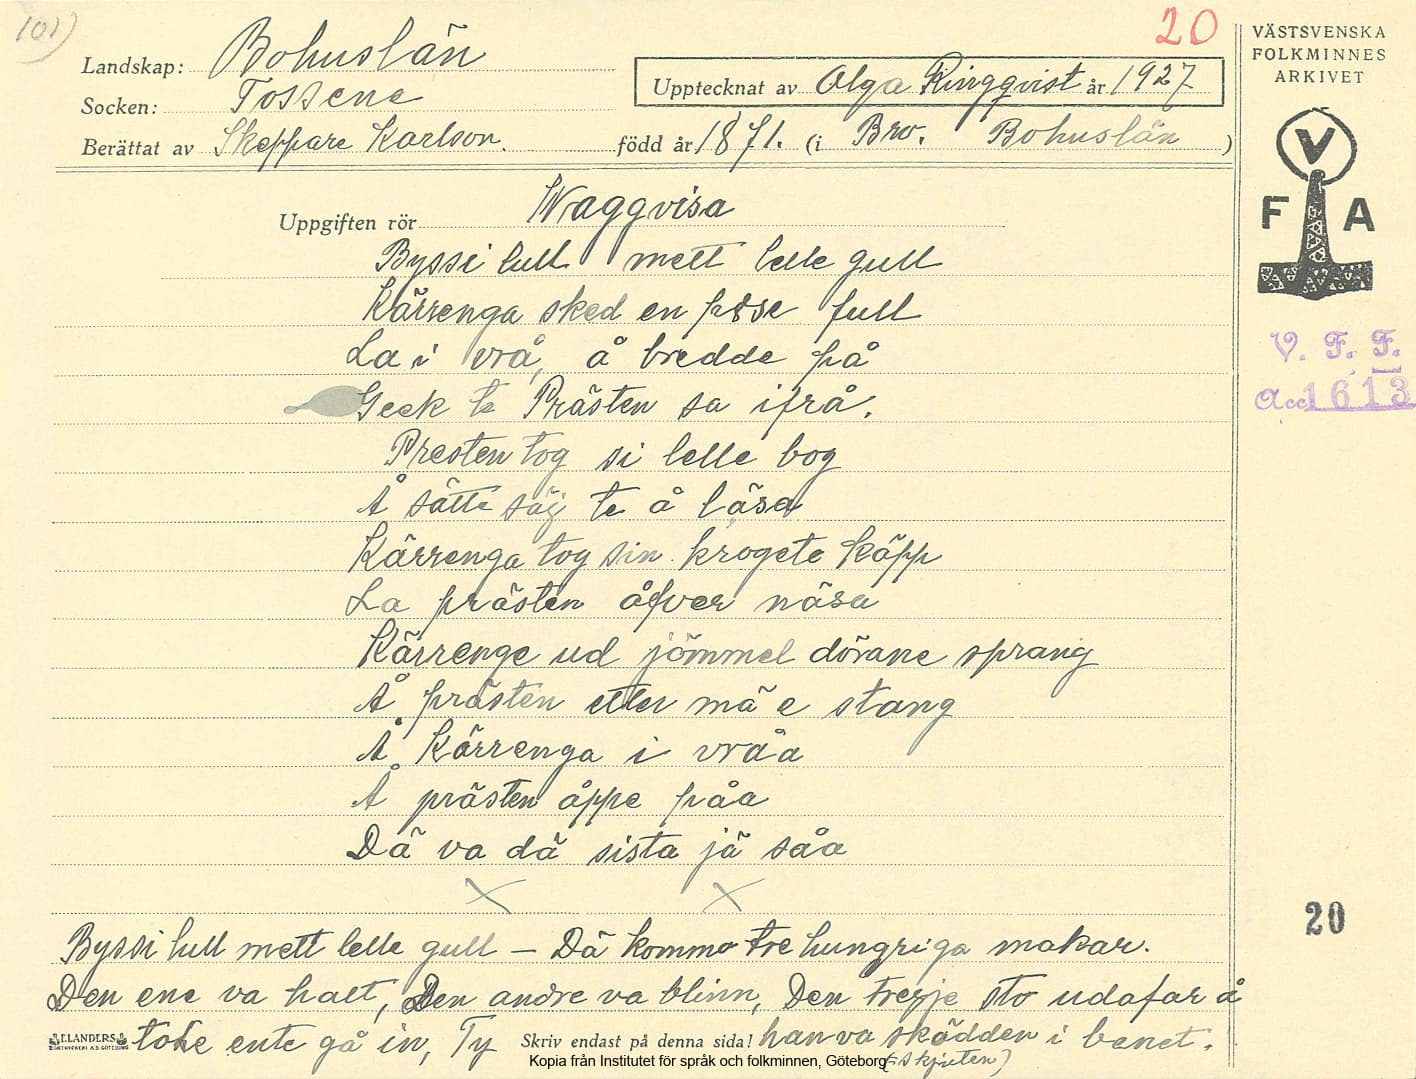 101)
20
Landskap: Bohuslän
Socken: Tossene
Upptecknat av Olga Ringqvist år 1927
Berättat av Skeppare Karlson. född år 1871. (i Bro. Bohuslän )
VÄSTSVENSKA
FOLKMINNES
ARKIVET
V
F A
V. F. F.
Acc 1613
Uppgiften rör Waggvisa
Byssi lull mett lelle gull
Kärrenga sked en påse full
La i vrå, å bredde på
Geek te Prästen sa ifrå.
Presten tog si lelle bog
Å sätte säj te å läsa
Kärrenga tog sin krogete käpp
La prästen åfver näsa
Kärrenge ud jömmel dörane sprang
Å prästen etter mä e stang
Å Kärrenga i vråa
Å prästen åppe påa
Dä va dä sista jä såa
20
Byssi lull mett lelle gull — Dä kommo tre hungriga makar.
Den ene va halt, Den andre va blinn, Den treje sto udafar å
ELANDERS toke ente gå in, Ty Skriv endast på denna sida! han va skädden i benet.
(= skjuten)
Kopia från Institutet för språk och folkminnen, Göteborg